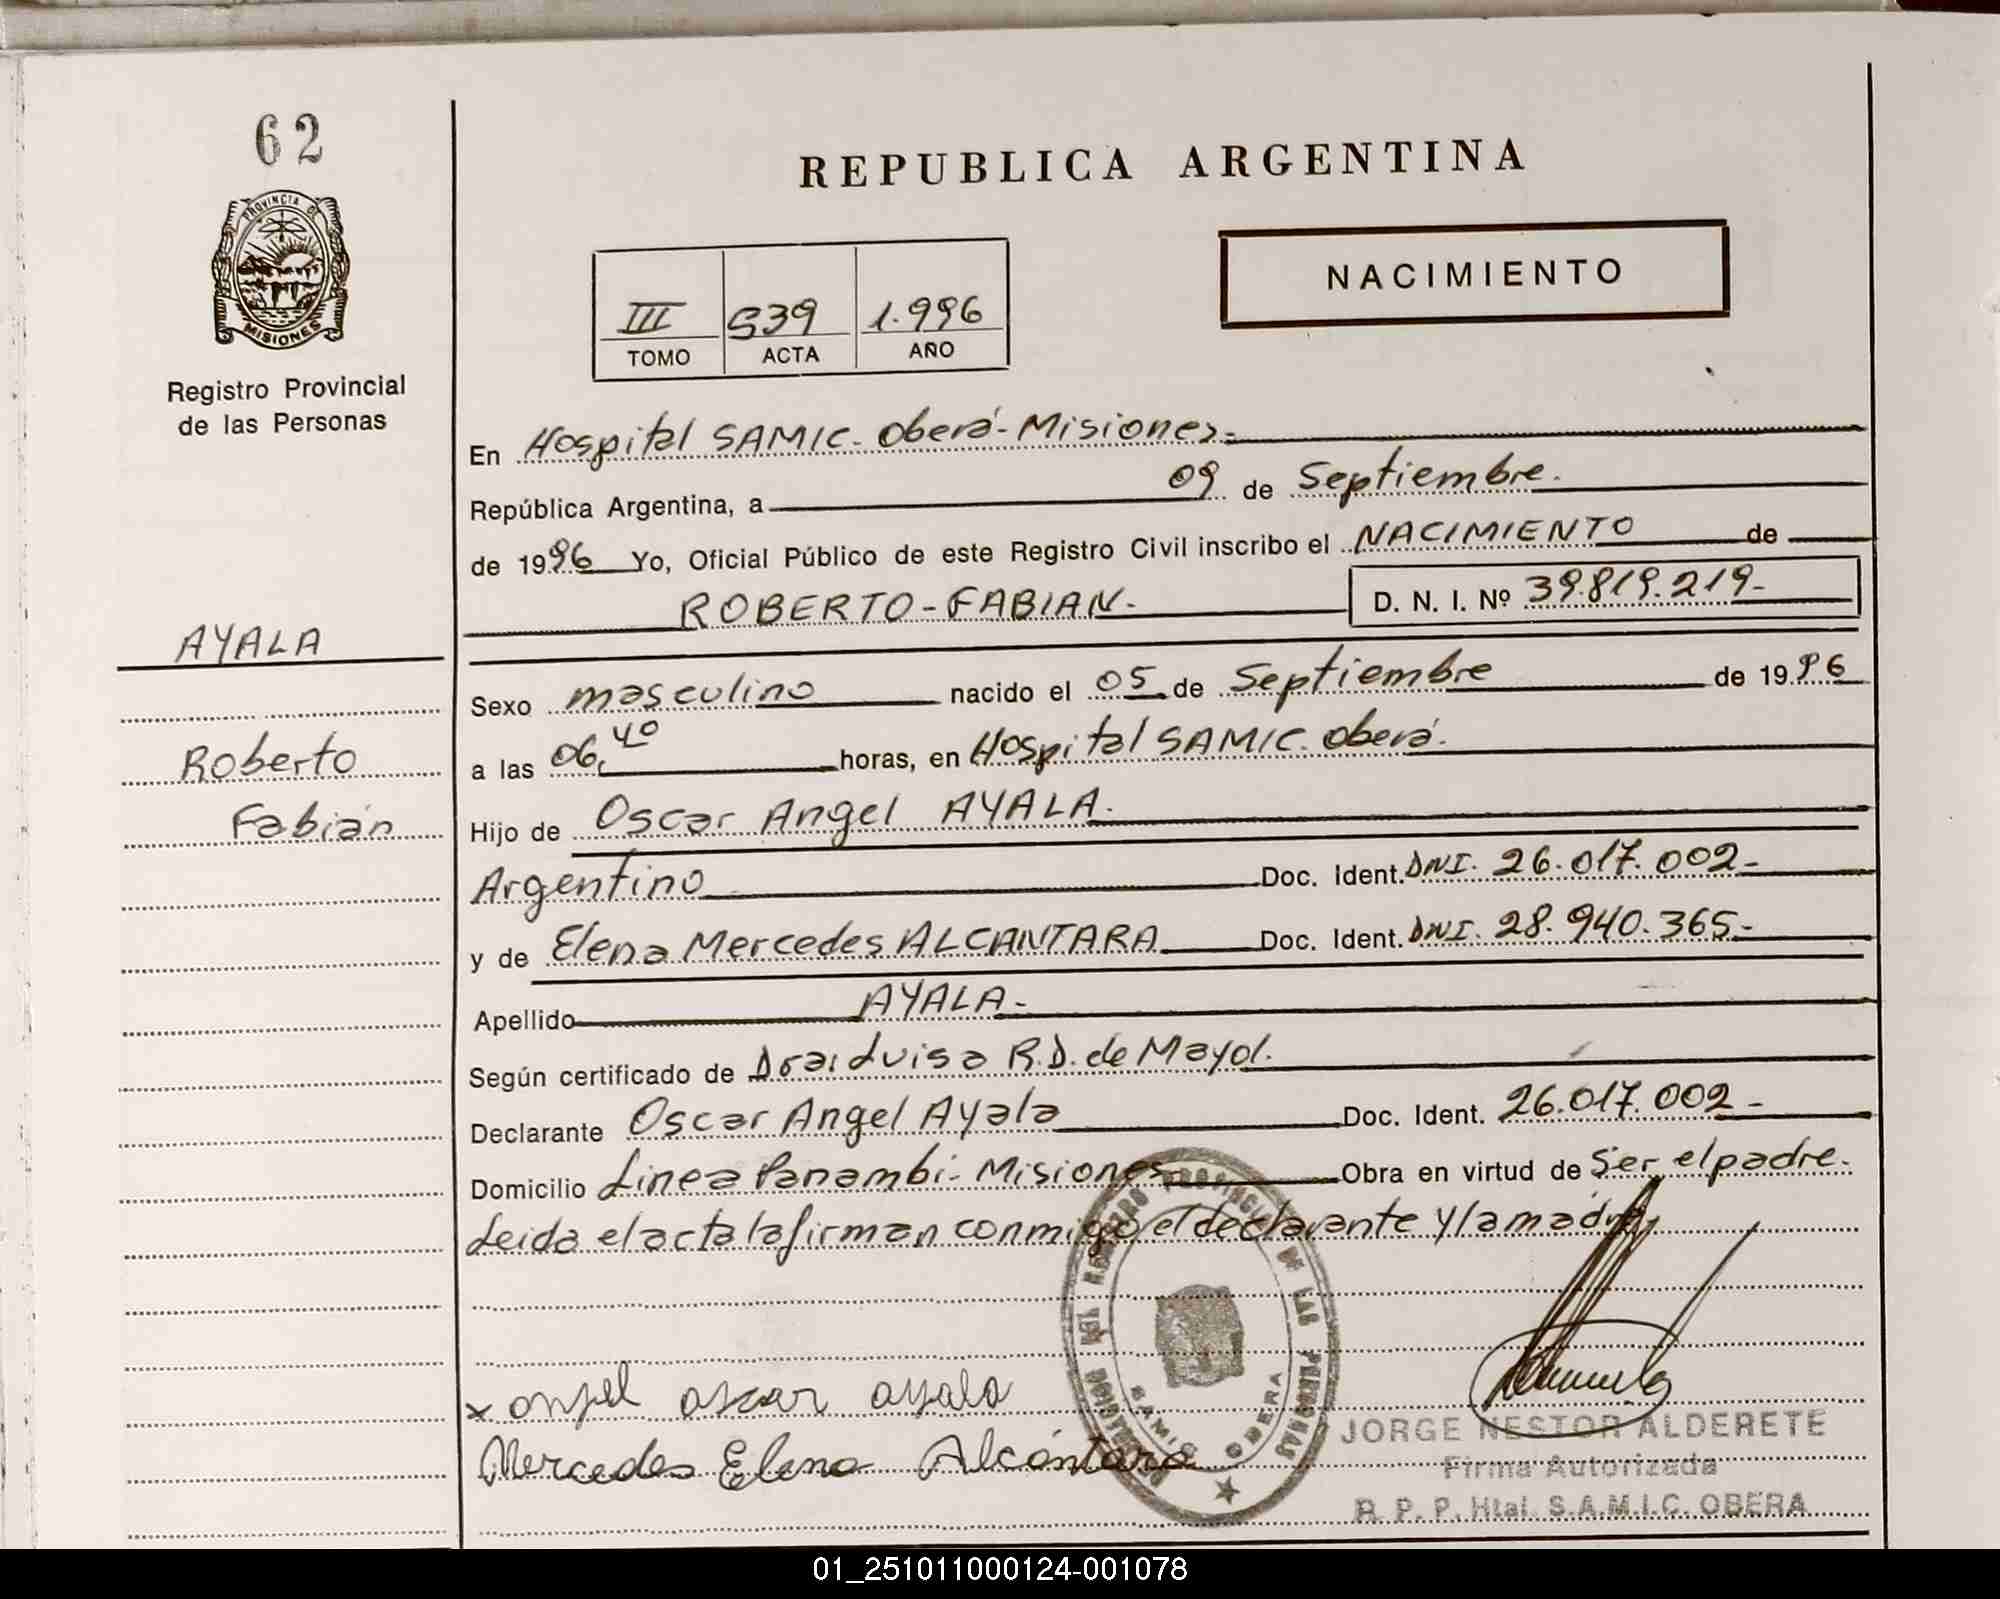 62
PROVINCIA DE
MISIONES
Registro Provincial
de las Personas
AYALA
Roberto
Fabián
REPUBLICA ARGENTINA
NACIMIENTO
III 539 1.996
TOMO ACTA AÑO
En Hospital SAMIC. Oberá - Misiones.-
República Argentina, a 09 de Septiembre.
de 1996 Yo, Oficial Público de este Registro Civil inscribo el NACIMIENTO de
ROBERTO - FABIAN.- D. N. I. Nº 39.819.219-
Sexo masculino nacido el 05 de Septiembre de 1996
a las 06,40 horas, en Hospital SAMIC. Oberá.
Hijo de Oscar Angel AYALA.
Argentino Doc. Ident. DNI. 26.017.002-
y de Elena Mercedes ALCANTARA Doc. Ident. DNI. 28.940.365.-
Apellido AYALA.-
Según certificado de Dra: Luisa R.D. de Mayol.
Declarante Oscar Angel Ayala Doc. Ident. 26.017.002-
Domicilio Linea Panambi- Misiones Obra en virtud de Ser el padre.
Leida el acta la firman conmigo el declarante y la madre
x angel oscar ayala
Mercedes Elena Alcántara
DEL REGISTRO PROVINCIAL DE LAS PERSONAS
SAMIC OBERA
JORGE NESTOR ALDERETE
Firma Autorizada
R. P. P. Htal. S.A.M.I.C. OBERA
01_251011000124-001078